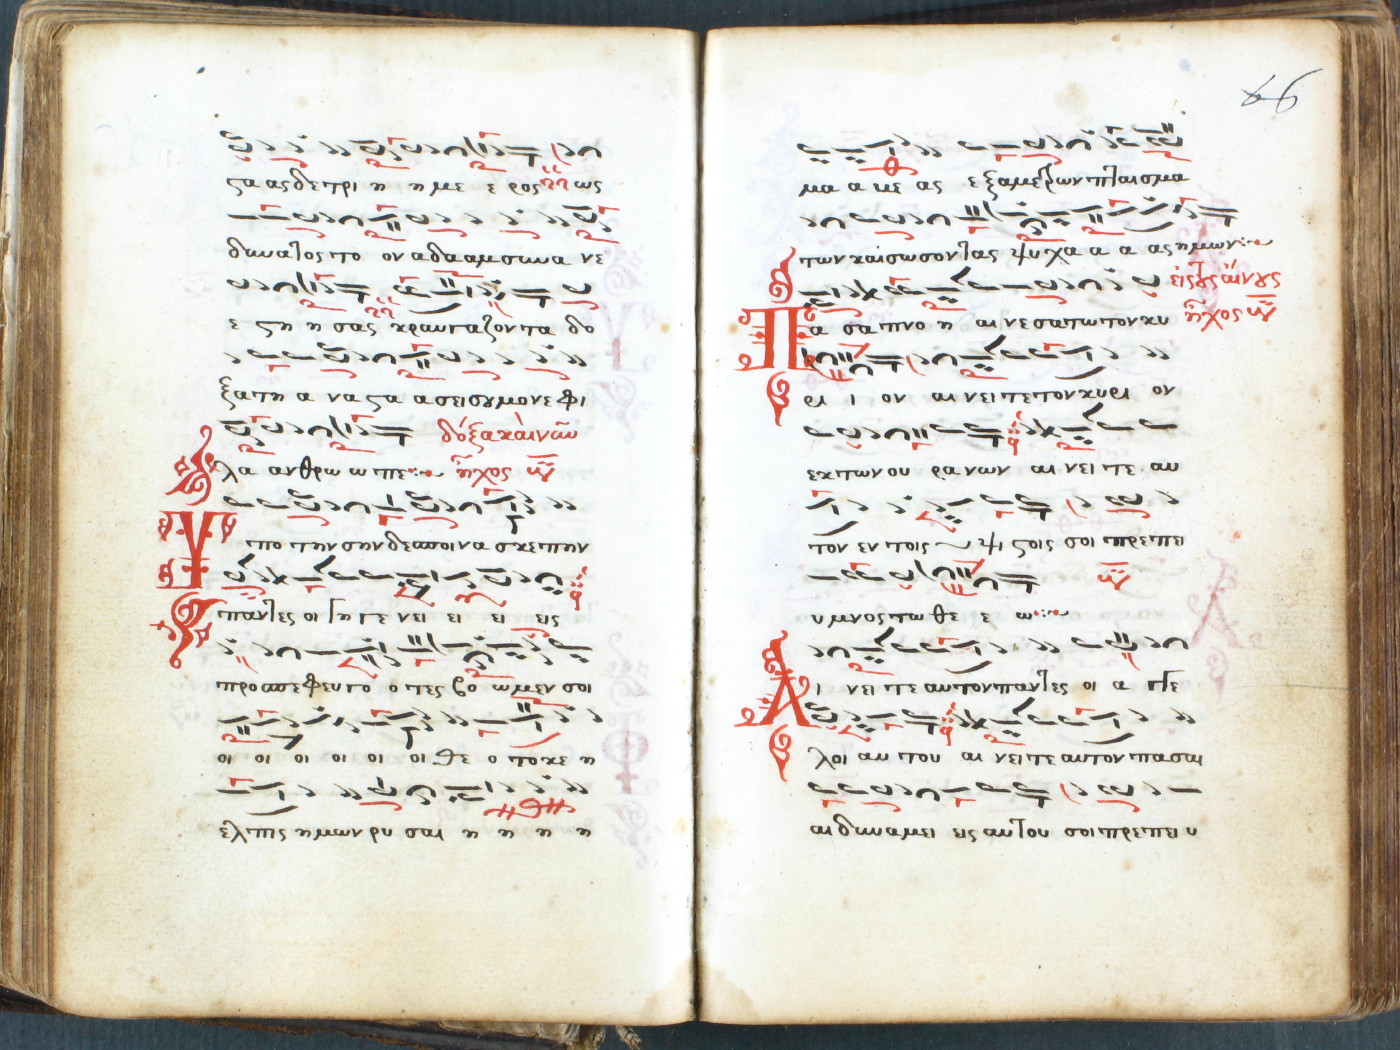 ϛα ας δε τρι η η με ε ρος ως
δυνατος το ον αδααμ συνα νε
ε ϛη η σας κραυγαζοντα δο
ξα τη α να ϛα α σει σου μονε φι
λα ανθρω ω πε δόξα καὶ νῦν ἦχος πλ
Υπο την σην δεσποινα σκεπην
παντες οι γη γε νει ει ει εις
προσπεφευγο ο τες βο ωμεν σοι
οι οι οι οι οι οι θε ο το κε η
ελπις ημων ρυ σαι η η η η
66
μα α κε ας εξ αμετρων πταισμα
των και σωσον τας ψυχα α α ας ημων
εἰς τοὺς αἴνους
Πα σα πνο η αι νε σα τω τον κυ ἦχος πλ
ρι ι ον αι νει τε τον κυρι ον
εκ των ου ρα νων αι νει τε αυ
τον εν τοις υψι ϛοις σοι πρεπει
υ μνος τω θε ε ω
Αι νει τε αυτον παντες οι α γγε
λοι αυ του αι νει τε αυτον πασαι
αι δυναμει εις αυτου σοι πρεπει υ